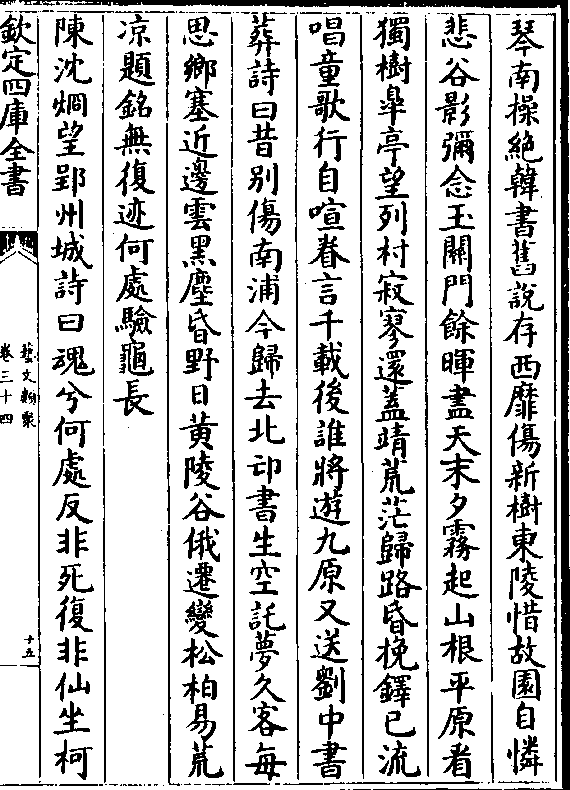 琴南操絶韓書舊説存西靡傷新樹東陵惜故園自憐
悲谷影彌念玉關門餘暉盡天末夕霧起山根平原看
獨樹臯亭望列村寂寥還蓋靖荒茫歸路昏挽鐸已流
唱童歌行自喧眷言千載後誰將遊九原又送劉中書
葬詩曰昔别傷南浦今歸去北邙書生空託夢久客每
思鄉塞近邊雲黑塵昏野日黄陵谷俄遷變松柏易荒
凉題銘無復迹何處驗龜長
陳沈烱望郢州城詩曰魂兮何處反非死復非仙坐柯
欽定四庫全書
藝文類聚
卷三十四
十五